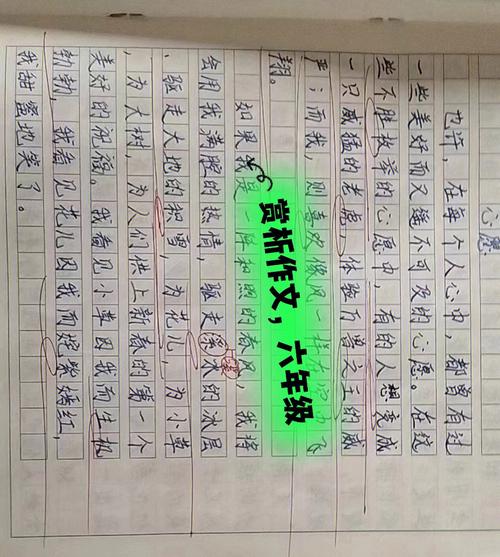 心愿
也许,在每个人心中,都曾有过
一些美好而又遥不可及的心愿。在这
些不胜枚举的心愿中,有的人想成
一只威猛的老虎,体验百兽之王的威
严;而我,则喜欢像风一样在飞
翔。
如果我是一阵和的春风,我将
会用我满腔的热情,驱走溪水的冰层
、驱走大地的积雪,为花儿,为小草
,为大树,为人们供上新春的第一个
美好的祝福。我看见小草因我而生机
勃勃,我看见花儿因我而姹紫嫣红,
我甜蜜地笑了。
赏析作文,六年级